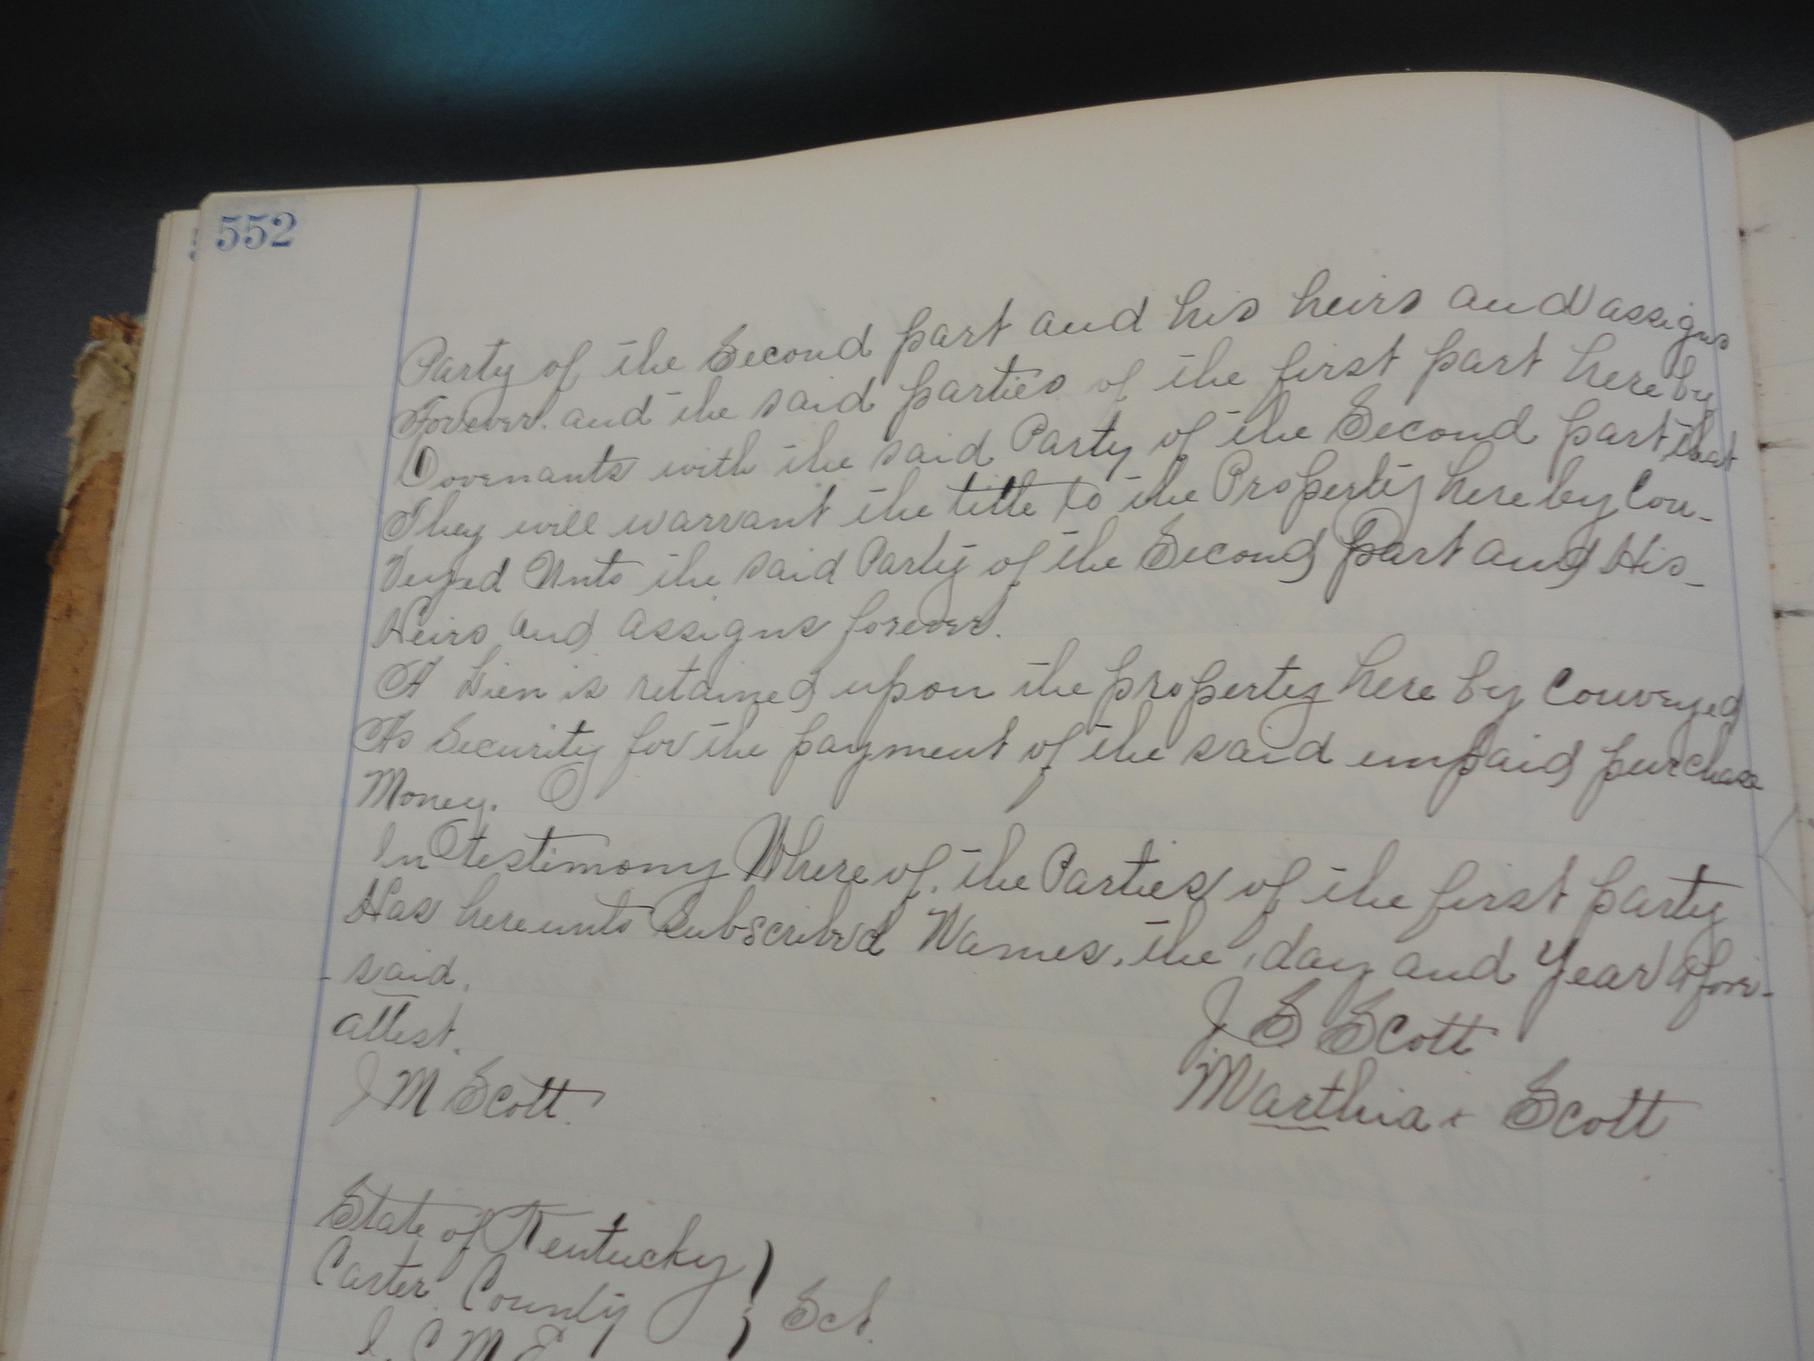 552
Party of the Second part and his heirs and assigns
Forever. and the said parties of the first part here by
Covenants with the said Party of the Second part that
They will warrant the title to the Property here by Con-
veyed Unto the said Party of the Second Part and His
Heirs and assigns forever.
A Lien is retained upon the property here by Conveyed
As Security for the payment of the said unpaid purchase
Money.
In testimony Where of, the Parties of the first party
Has here unto Subscribed Names, the, day and Year afore-
- said.
attest.
J S Scott
J M Scott.
Marthia x Scott
State of Kentucky
Carter County } Sct.